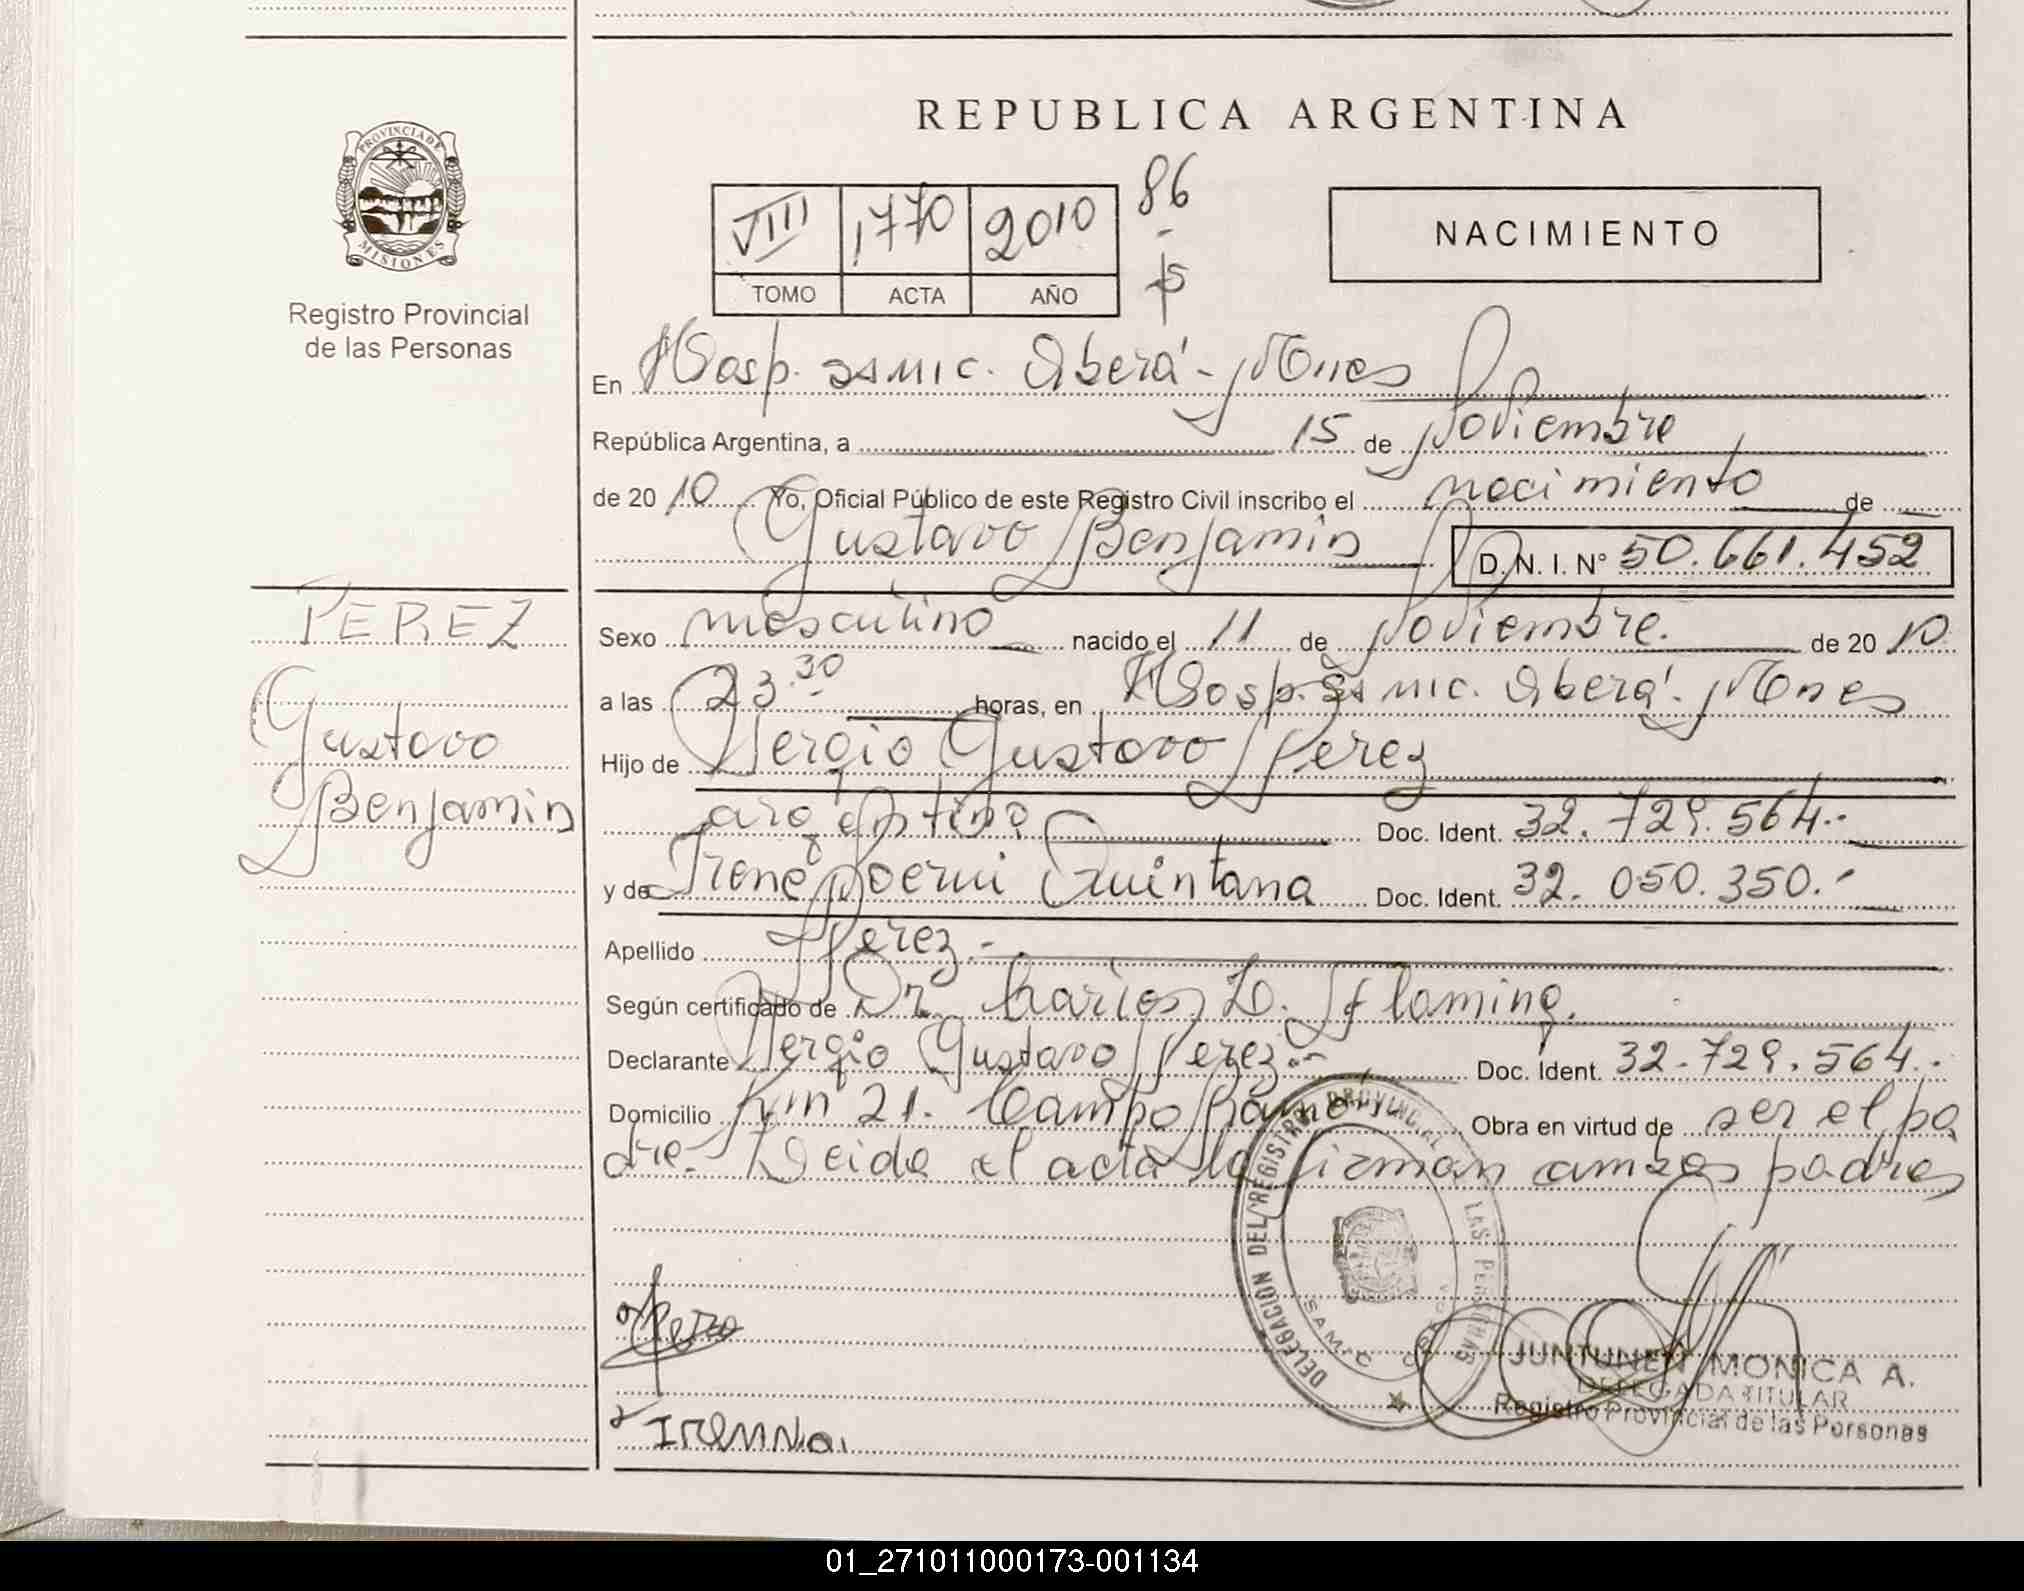 REPUBLICA ARGENTINA
PROVINCIA DE
MISIONES
Registro Provincial
de las Personas
VIII 1770 2010 86
TOMO ACTA AÑO
NACIMIENTO
En Hosp. SAMIC. Oberá - Mnes
República Argentina, a 15 de Noviembre
de 20 10 Yo, Oficial Público de este Registro Civil inscribo el nacimiento de
Gustavo Benjamin D. N. I. N° 50.661.452
PEREZ
Gustavo
Benjamin
Sexo masculino nacido el 11 de Noviembre. de 20 10
a las 23.30 horas, en Hosp. SAMIC. Oberá - Mnes
Hijo de Sergio Gustavo Perez
argentino Doc. Ident. 32.729.564.-
y de Irene Noemi Quintana Doc. Ident. 32.050.350.-
Apellido Perez.-
Según certificado de Dr. Carlos D. Flaming.
Declarante Sergio Gustavo Perez.- Doc. Ident. 32.729.564.-
Domicilio Km 21. Campo Ramón Obra en virtud de ser el pa
dre. Leida el acta la firman ambos padres
DELEGACION DEL REGISTRO PROVINCIAL LAS PERSONAS
SAMIC
JUNTUNEN MONICA A.
DELEGADA TITULAR
Registro Provincial de las Personas
01_271011000173-001134